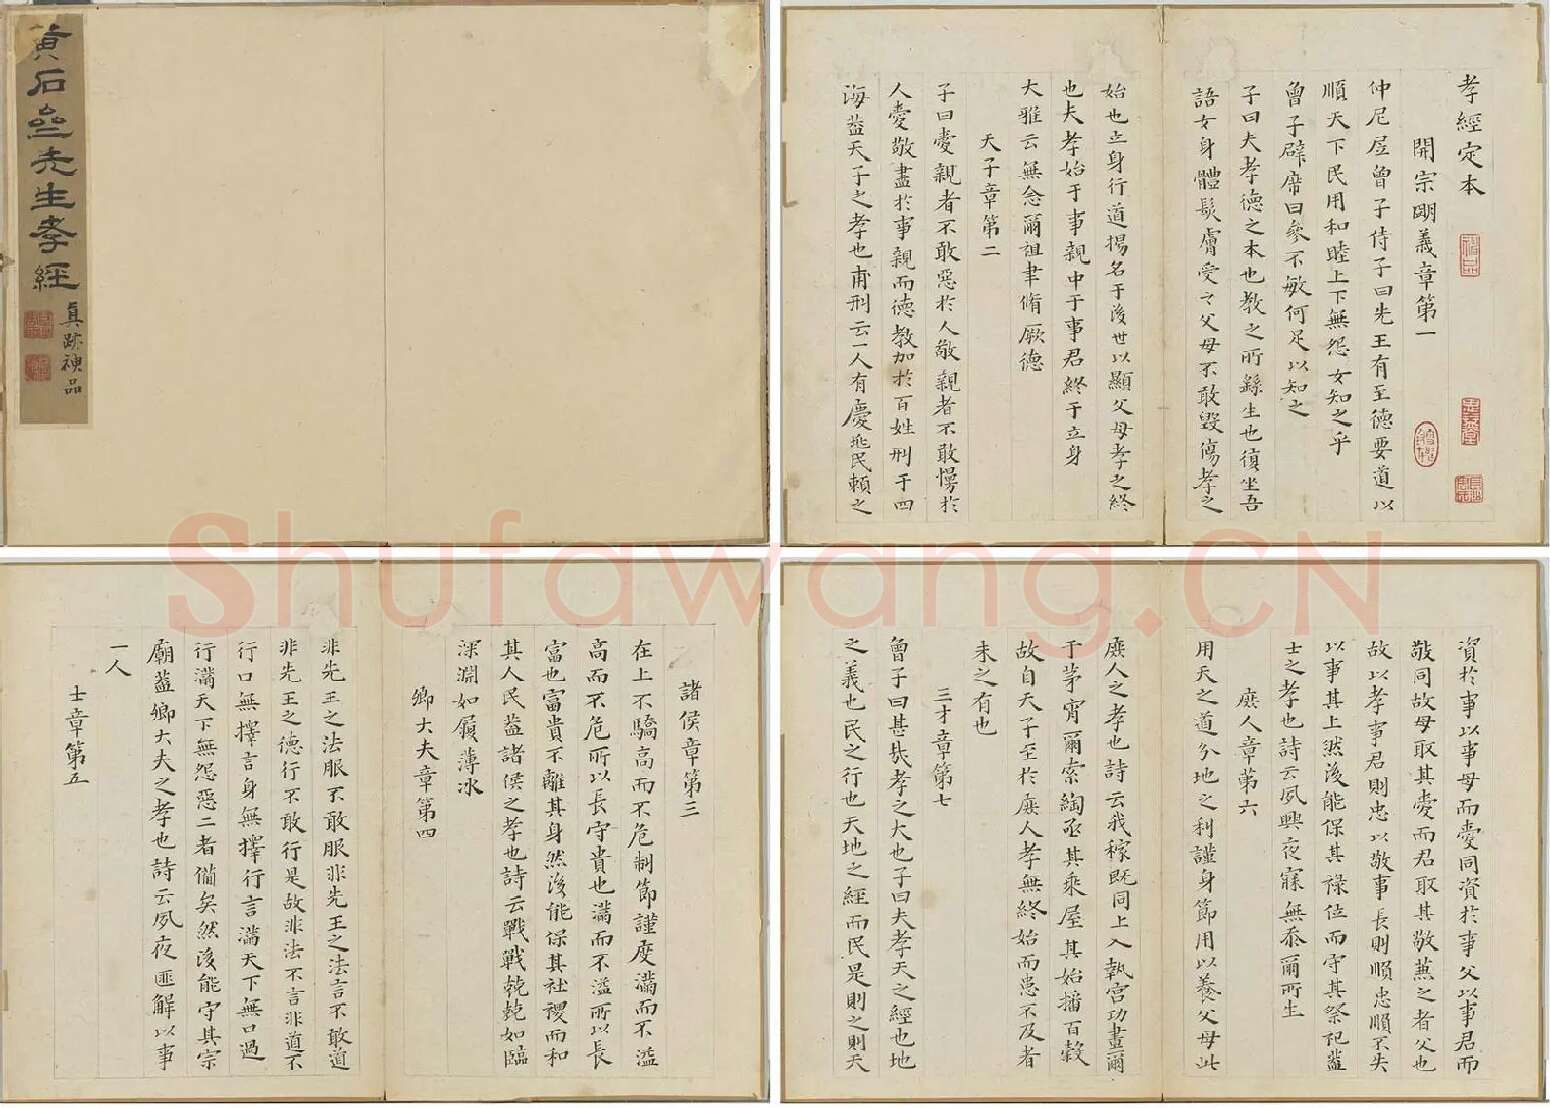 黃石齋先生孝經
真跡神品
孝經定本
開宗明義章第一
仲尼凥曾子侍子曰先王有至德要道以
順天下民用和睦上下無怨女知之乎
曾子辟席曰參不敏何足以知之
子曰夫孝德之本也教之所繇生也復坐吾
語女身體髮膚受之父母不敢毀傷孝之
始也立身行道揚名于後世以顯父母孝之終
也夫孝始于事親中于事君終于立身
大雅云無念爾祖聿脩厥德
天子章第二
子曰愛親者不敢惡於人敬親者不敢慢於
人愛敬盡於事親而德教加於百姓刑于四
海蓋天子之孝也甫刑云一人有慶兆民賴之
諸侯章第三
在上不驕高而不危制節謹度滿而不溢
高而不危所以長守貴也滿而不溢所以長
富也富貴不離其身然後能保其社稷而和
其人民蓋諸侯之孝也詩云戰戰兢兢如臨
深淵如履薄冰
卿大夫章第四
非先王之法服不敢服非先王之法言不敢道
非先王之德行不敢行是故非法不言非道不
行口無擇言身無擇行言滿天下無口過
行滿天下無怨惡三者備矣然後能守其宗
廟蓋卿大夫之孝也詩云夙夜匪解以事
一人
士章第五
資於事父以事母而愛同資於事父以事君而
敬同故母取其愛而君取其敬兼之者父也
故以孝事君則忠以敬事長則順忠順不失
以事其上然後能保其祿位而守其祭祀蓋
士之孝也詩云夙興夜寐無忝爾所生
庶人章第六
用天之道分地之利謹身節用以養父母此
庶人之孝也詩云我稼既同上入執宮功晝爾
于茅宵爾索綯亟其乘屋其始播百穀
故自天子至於庶人孝無終始而患不及者
未之有也
三才章第七
曾子曰甚哉孝之大也子曰夫孝天之經也地
之義也民之行也天地之經而民是則之則天
Shufawang.CN